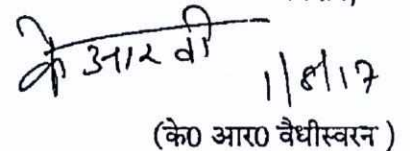 के आर वी
1/8/17
(के0 आर0 वैधीस्वरन )